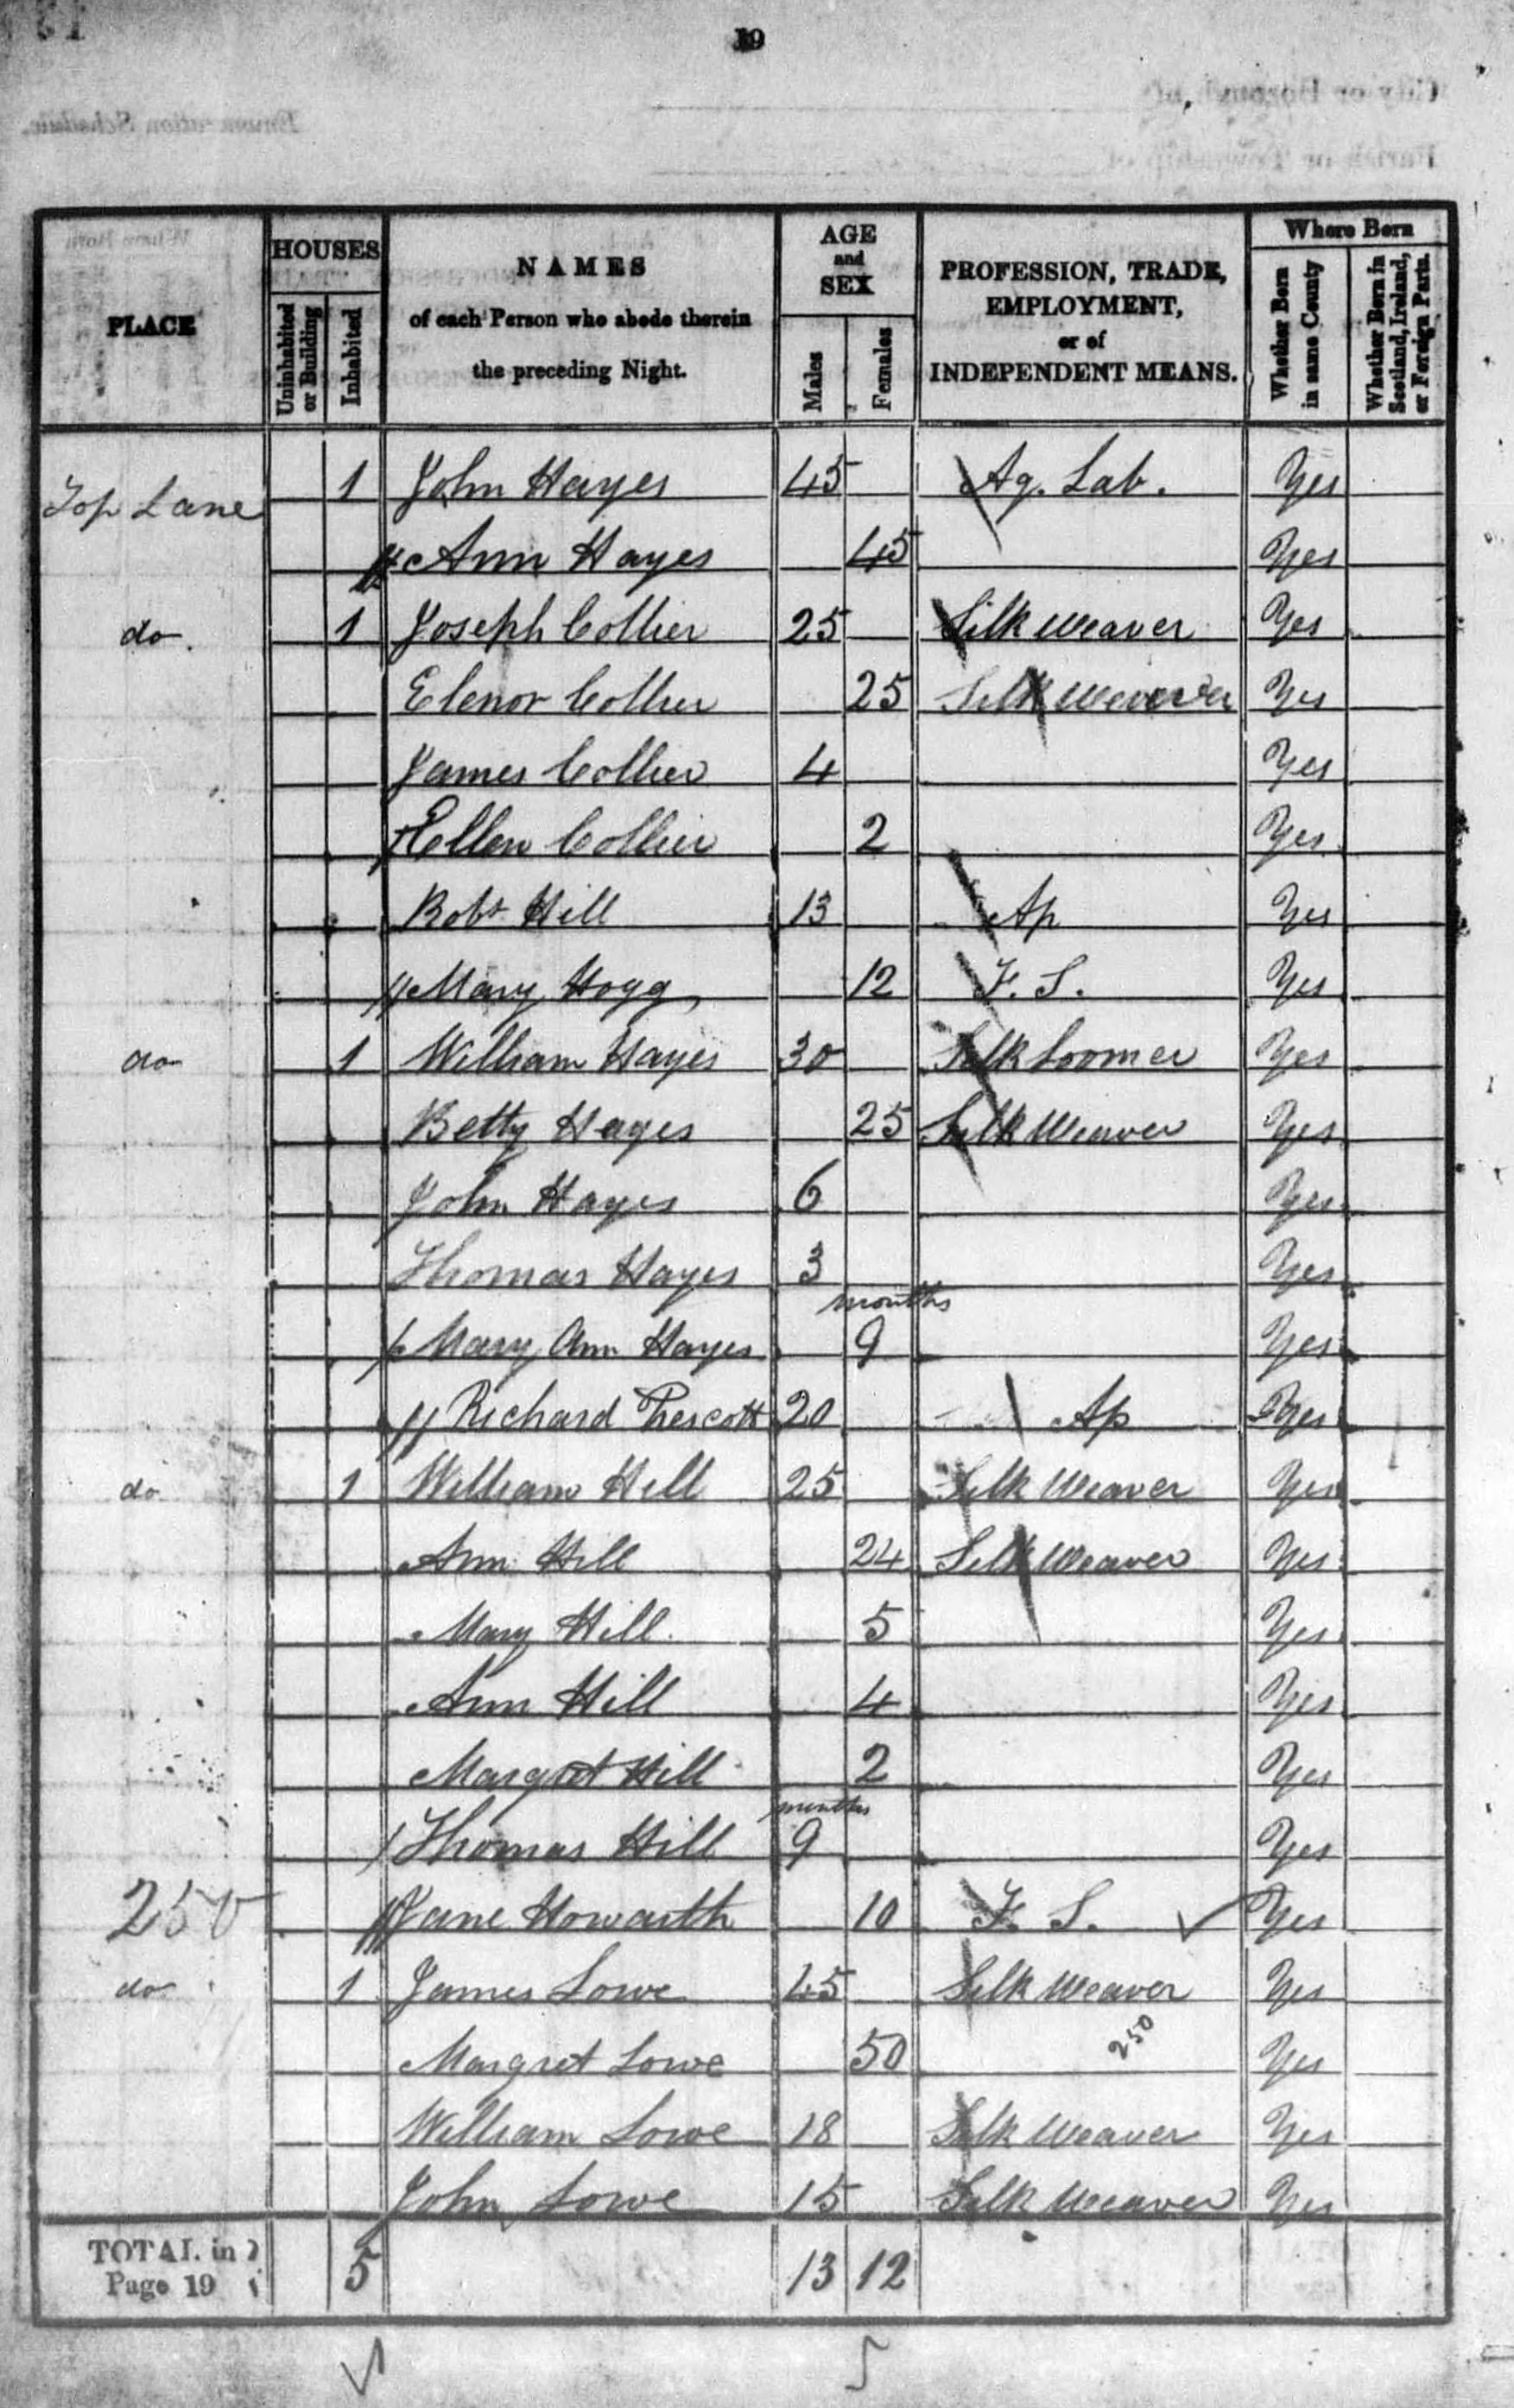 19
PLACE HOUSES NAMES AGE and SEX PROFESSION, TRADE, EMPLOYMENT, or of INDEPENDENT MEANS. Where Born
Uninhabited or Building Inhabited of each Person who abode therein the preceding Night. Males Females Whether Born in same County Whether Born in Scotland, Ireland, or Foreign Parts.
Top Lane 1 John Hayes 45 Ag. Lab. Yes
Ann Hayes 45 Yes
do 1 Joseph Collier 25 Silk Weaver Yes
Elenor Collier 25 Silk Weaver Yes
James Collier 4 Yes
Ellen Collier 2 Yes
Robt Hill 13 Ap Yes
Mary Hogg 12 F. S. Yes
do 1 William Hayes 30 Silk Loomer Yes
Betty Hayes 25 Silk Weaver Yes
John Hayes 6 Yes
Thomas Hayes 3 Yes
months
Mary Ann Hayes 9 Yes
Richard Prescott 20 Ap Yes
do 1 William Hill 25 Silk Weaver Yes
Ann Hill 24 Silk Weaver Yes
Mary Hill 5 Yes
Ann Hill 4 Yes
Margret Hill 2 Yes
months
Thomas Hill 9 Yes
250 Jane Howarth 10 F. S. Yes
do 1 James Lowe 45 Silk Weaver Yes
250
Margret Lowe 50 Yes
William Lowe 18 Silk Weaver Yes
John Lowe 15 Silk Weaver Yes
TOTAL in Page 19 5 13 12